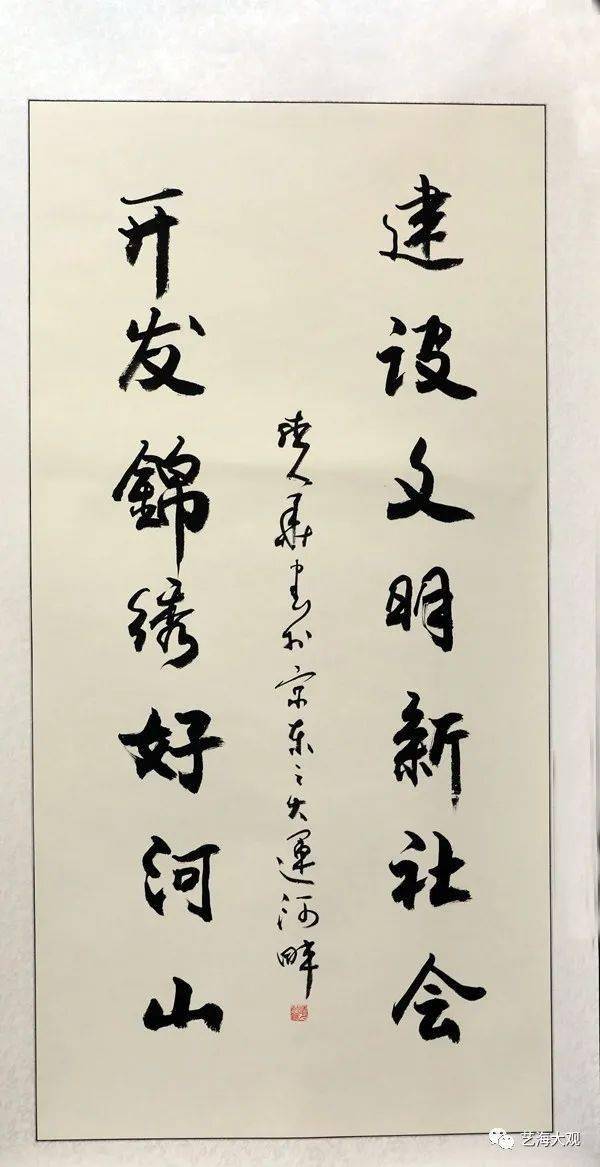 建设文明新社会
开发錦绣好河山
人華书於京东之大運河畔
艺海大观